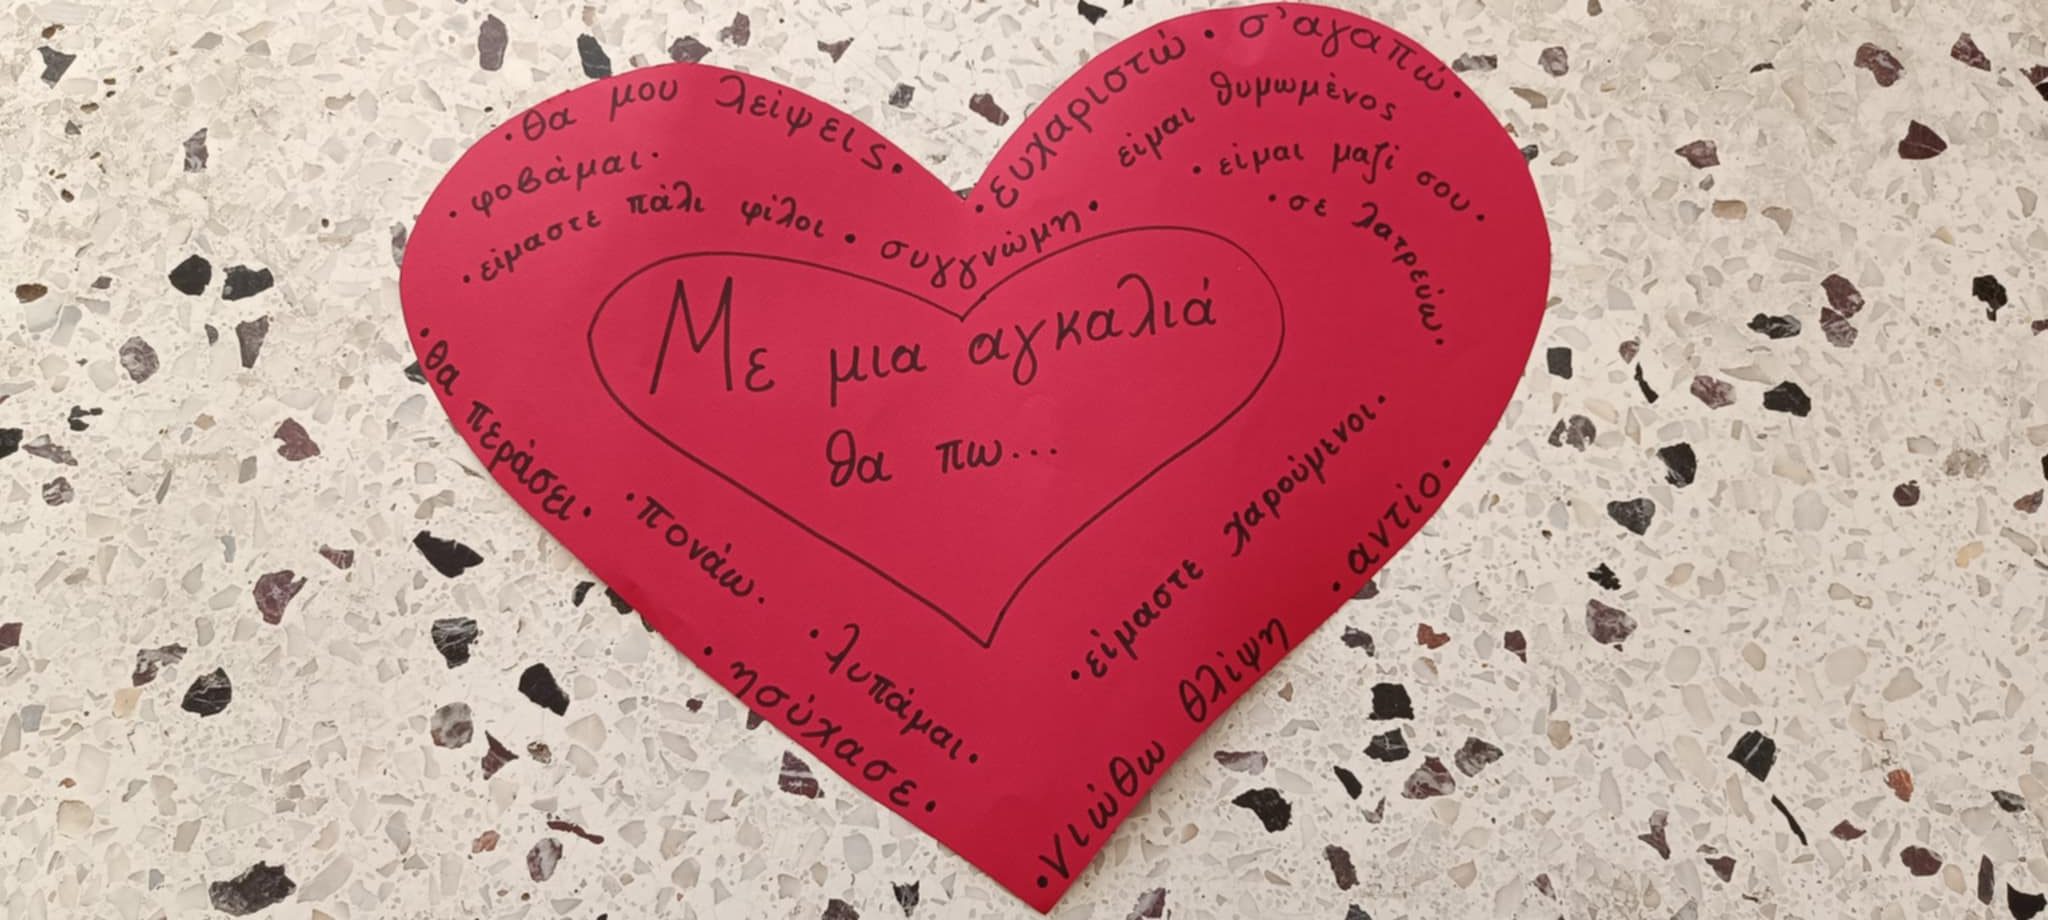 θα μου λείψεις.
φοβάμαι.
είμαστε πάλι φίλοι.
συγγνώμη.
ευχαριστώ.
σ'αγαπώ.
είμαι θυμωμένος
είμαι μαζί σου.
σε λατρεύω.
Με μια αγκαλιά
θα πω...
θα περάσει.
πονάω.
λυπάμαι.
ησύχασε.
είμαστε χαρούμενοι.
αντίο.
νιώθω θλίψη